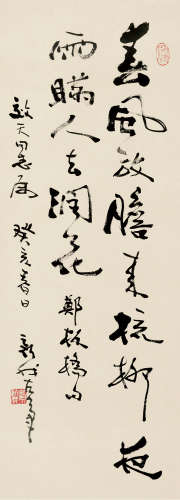 春風放膽来梳柳夜
雨瞞人去潤花 鄭板橋句
天同志属 癸亥春日 新我左筆